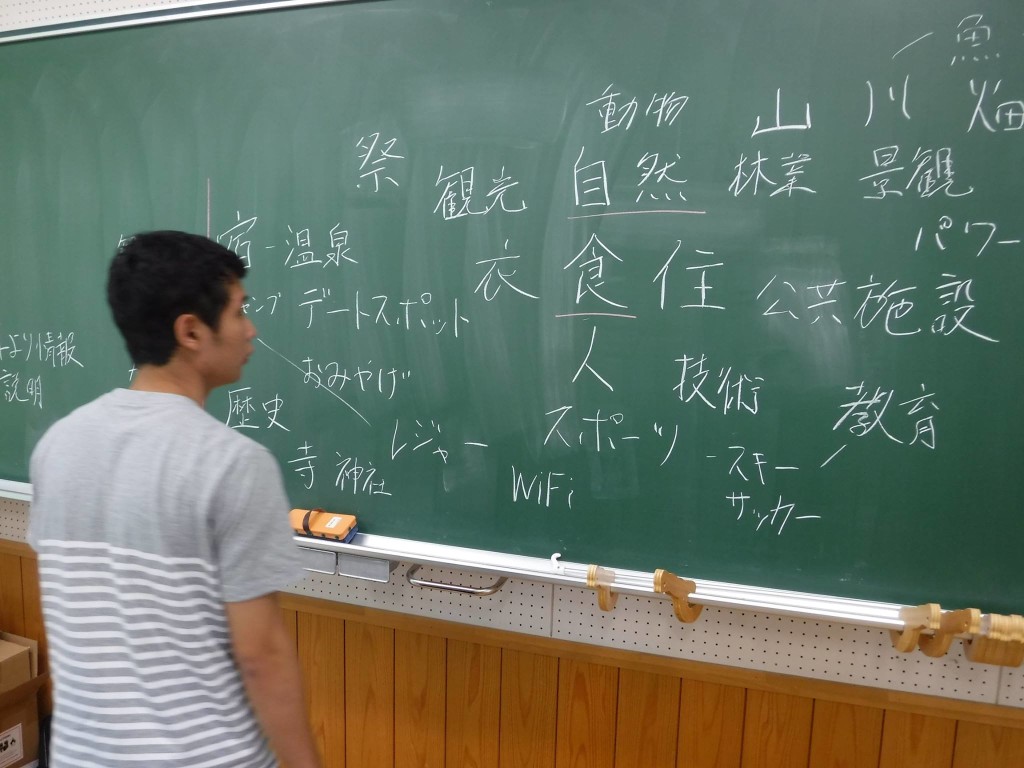 魚
動物 山 川 畑
祭 観光 自然 林業 景観
宿-温泉 衣 食 住 パワー
デートスポット 公共施設
情報 おみやげ 人 技術
説明 歴史 レジャー スポーツ 教育
寺 神社 WiFi -スキー
サッカー